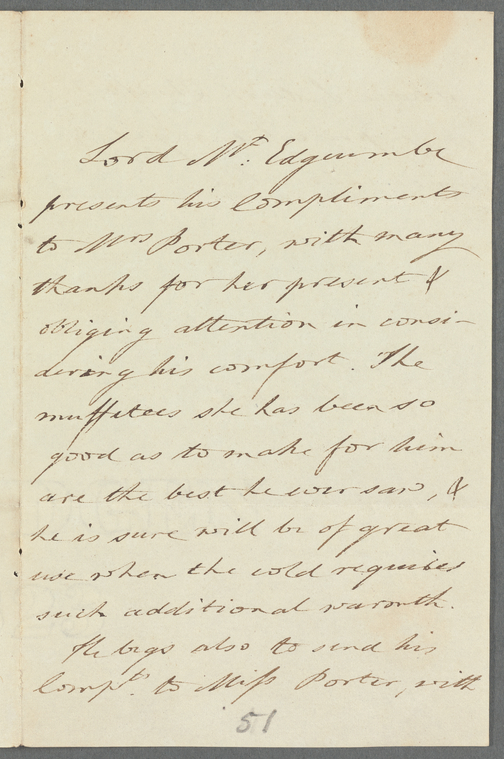 Lord Mt. Edgcumbe
presents his Compliments
to Mrs Porter, with many
thanks for her present &
obliging attention in consi-
dering his comfort. The
muffetees she has been so
good as to make for him
are the best he ever saw, &
he is sure will be of great
use when the cold requires
such additional warmth.
He begs also to send his
Compts. to Miss Porter, with
51